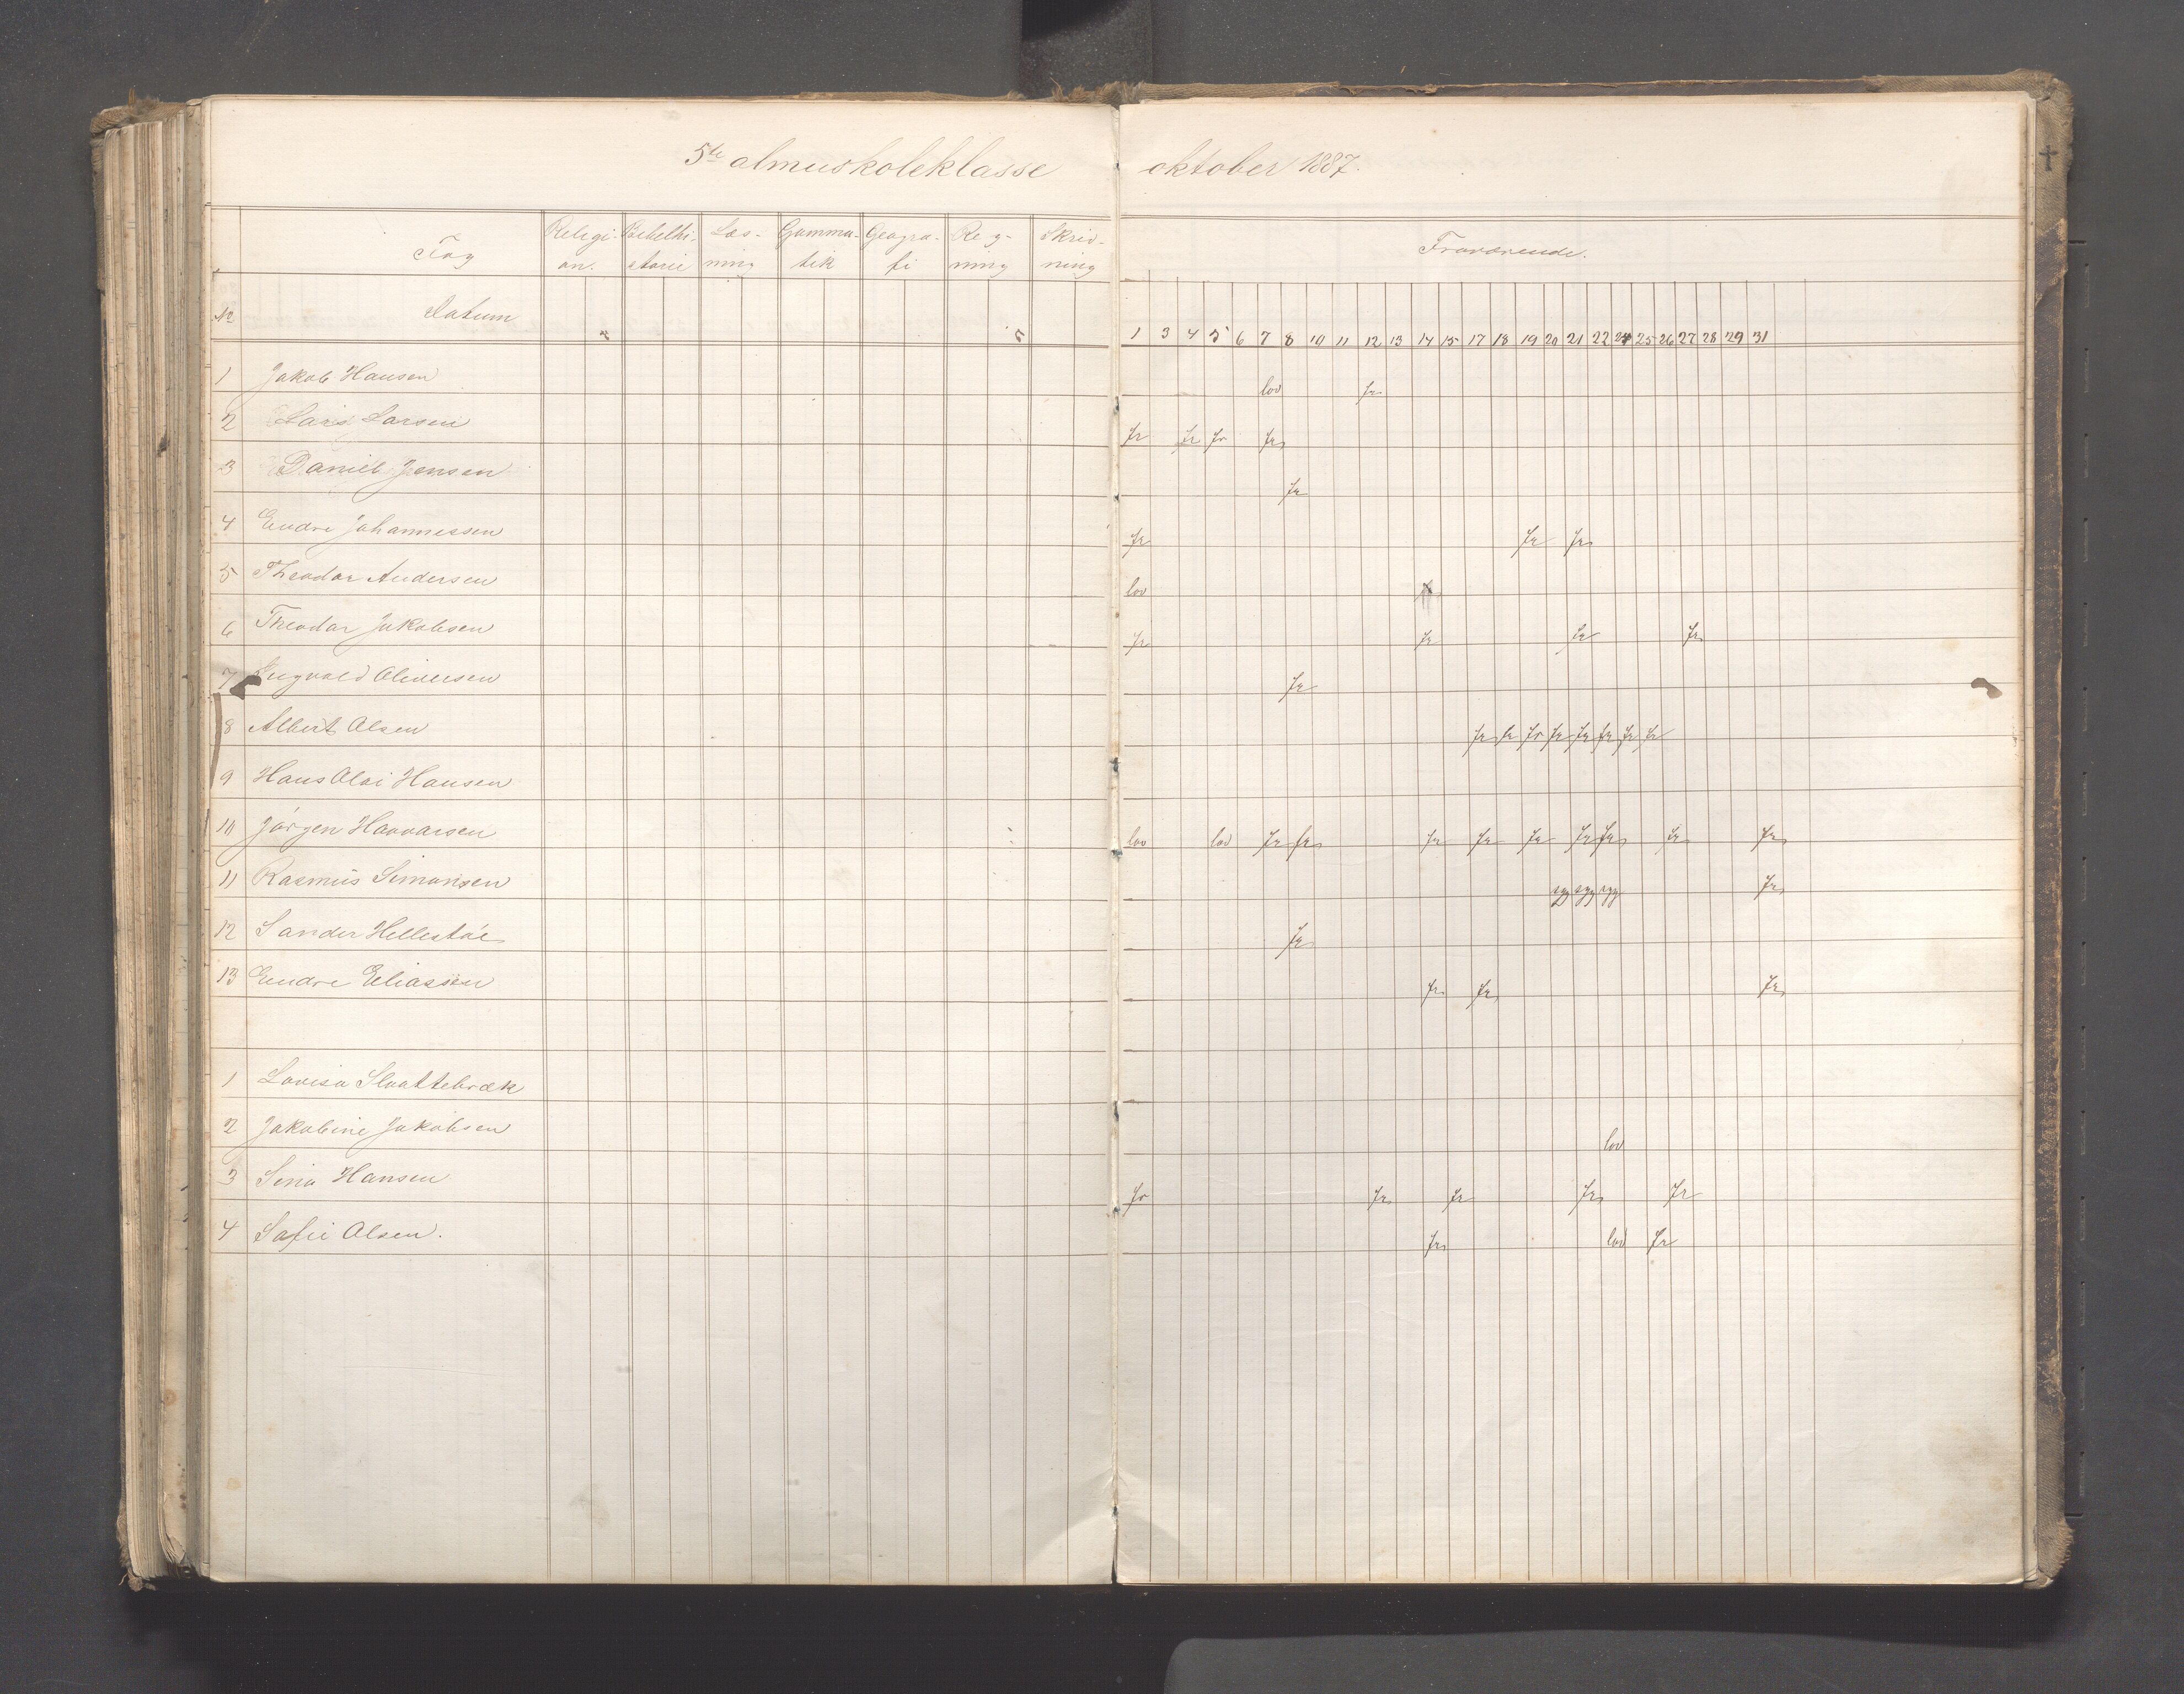 5te almueskoleklasse oktober 1887.
Fag Religi- Bibelhi- Læs- Gramma- Geogra- Reg- Skriv-
on. storie ning tik fi ning ning
Fraværende.
No Datum
1 3 4 5 6 7 8 10 11 12 13 14 15 17 18 19 20 21 22 24 25 26 27 28 29 31
1 Jakob Hansen lov fr
2 Lars Larsen fr fr fr fr
3 Daniel Jensen fr
4 Endre Johannessen fr fr fr
5 Theodor Andersen lov
6 Theodor Jakobsen fr fr fr fr
7 Ingvald Oliversen fr
8 Albert Olsen fr fr fr fr fr fr fr fr
9 Hans Olai Hansen
10 Jörgen Havvarsen lov lov fr fr fr fr fr fr fr fr fr
11 Rasmus Simonsen syg syg syg fr
12 Sander Hellestöe fr
13 Endre Eliassen fr fr fr
1 Lovisa Slaattebræk
2 Jakobine Jakobsen lov
3 Sina Hansen fr fr fr fr fr
4 Sofie Olsen. fr lov fr